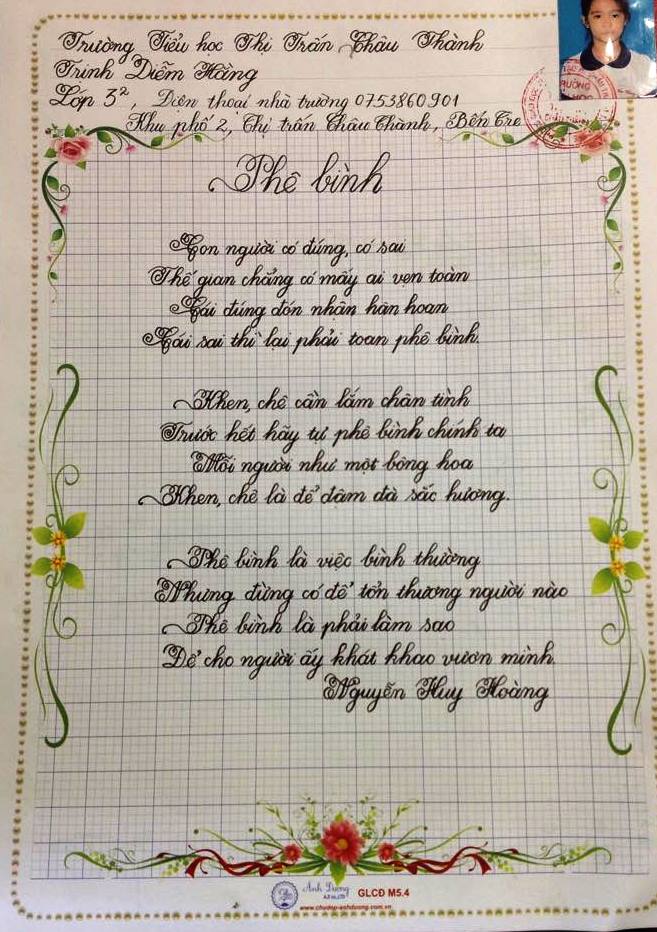 Trường Tiểu học Thị Trấn Châu Thành
Trịnh Diễm Hằng
Lớp 3², Điện thoại nhà trường 0753860901
Khu phố 2, Thị trấn Châu Thành, Bến Tre
Phê bình
Con người có đúng, có sai
Thế gian chẳng có mấy ai vẹn toàn
Cái đúng đón nhận hân hoan
Cái sai thì lại phải toan phê bình.
Khen, chê cần lắm chân tình
Trước hết hãy tự phê bình chính ta
Mỗi người như một bông hoa
Khen, chê là để đậm đà sắc hương.
Phê bình là việc bình thường
Nhưng đừng có để tổn thương người nào
Phê bình là phải làm sao
Để cho người ấy khát khao vươn mình.
Nguyễn Huy Hoàng
Ánh Dương
GLCĐ M5.4
www.chudep-anhduong.com.vn